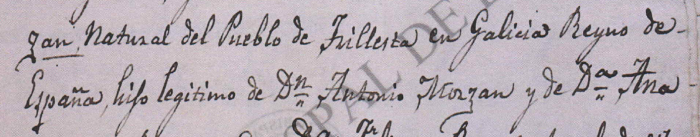 zan, Natural del Pueblo de Frillesta en Galicia Reyno de
España, hijo legitimo de Dn. Antonio Morzan y de Da. Ana